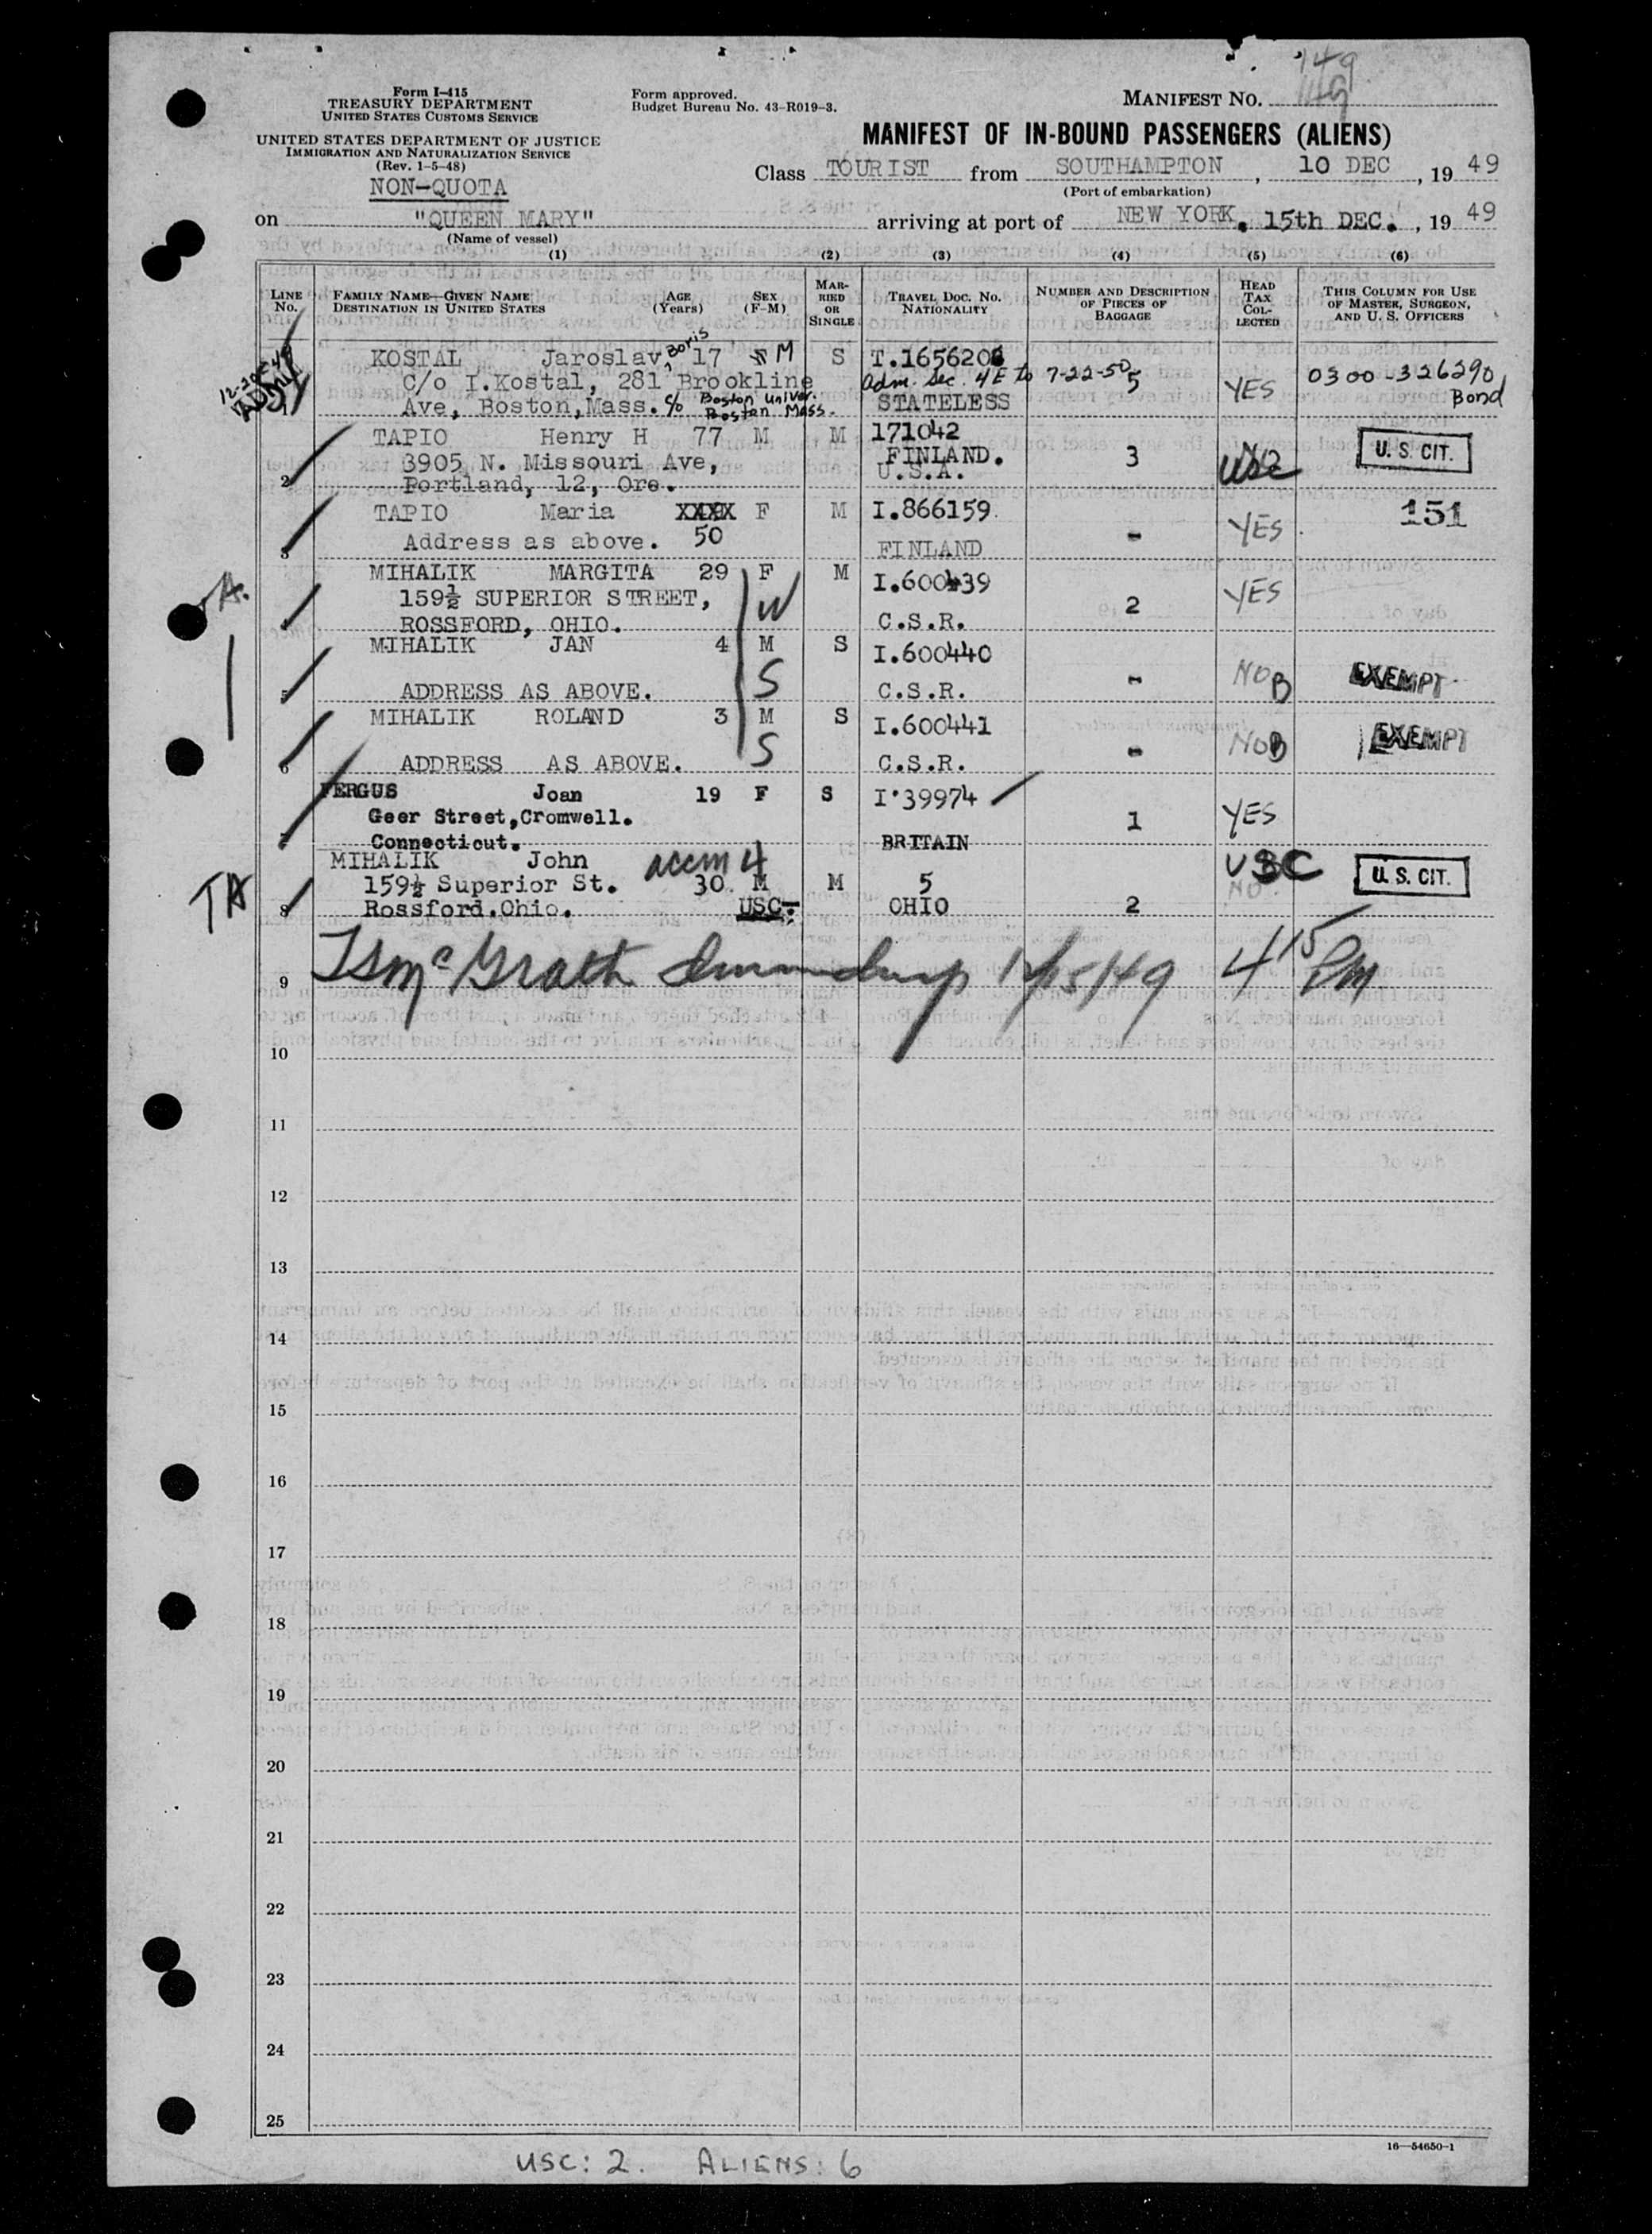 149
149
Form I-415
TREASURY DEPARTMENT
UNITED STATES CUSTOMS SERVICE
UNITED STATES DEPARTMENT OF JUSTICE
IMMIGRATION AND NATURALIZATION SERVICE
(Rev. 1-5-48)
NON-QUOTA
Form approved.
Budget Bureau No. 43-R019-3.
MANIFEST NO.
MANIFEST OF IN-BOUND PASSENGERS (ALIENS)
Class TOURIST from SOUTHAMPTON, 10 DEC, 19 49
(Port of embarkation)
on "QUEEN MARY" arriving at port of NEW YORK. 15th DEC., 19 49
(Name of vessel)
(1) (2) (3) (4) (5) (6)
LINE No. FAMILY NAME—GIVEN NAME DESTINATION IN UNITED STATES AGE (Years) SEX (F-M) MARRIED OR SINGLE TRAVEL DOC. NO. NATIONALITY NUMBER AND DESCRIPTION OF PIECES OF BAGGAGE HEAD TAX COLLECTED THIS COLUMN FOR USE OF MASTER, SURGEON, AND U. S. OFFICERS
KOSTAL Jaroslav, Boris 17 M S T.165620
C/o I.Kostal, 281 Brookline Adm. Sec. 4E to 7-22-50 5 YES 0300-326290
Ave, Boston, Mass. c/o Boston Univer. Boston Mass. STATELESS Bond
TAPIO Henry H 77 M M 171042
3905 N. Missouri Ave, FINLAND. 3 USC U. S. CIT.
2 Portland, 12, Ore. U.S.A.
TAPIO Maria XXXX F M I.866159 151
3 Address as above. 50 FINLAND - YES
MIHALIK MARGITA 29 F M I.600439
159½ SUPERIOR STREET, W 2 YES
ROSSFORD, OHIO. C.S.R.
MIHALIK JAN 4 M S I.600440
5 ADDRESS AS ABOVE. S C.S.R. - NO B EXEMPT
MIHALIK ROLAND 3 M S I.600441
6 ADDRESS AS ABOVE. S C.S.R. - NO B EXEMPT
FERGUS Joan 19 F S I.39974
Geer Street, Cromwell. 1 YES
7 Connecticut. BRITAIN
MIHALIK John accm 4 USC
TA 159½ Superior St. 30 M M 5 NO U. S. CIT.
8 Rossford, Ohio. USC. OHIO 2
9 McGrath 12/15/49 4 15 PM
10
11
12
13
14
15
16
17
18
19
20
21
22
23
24
25
16—54650-1
USC: 2. ALIENS: 6